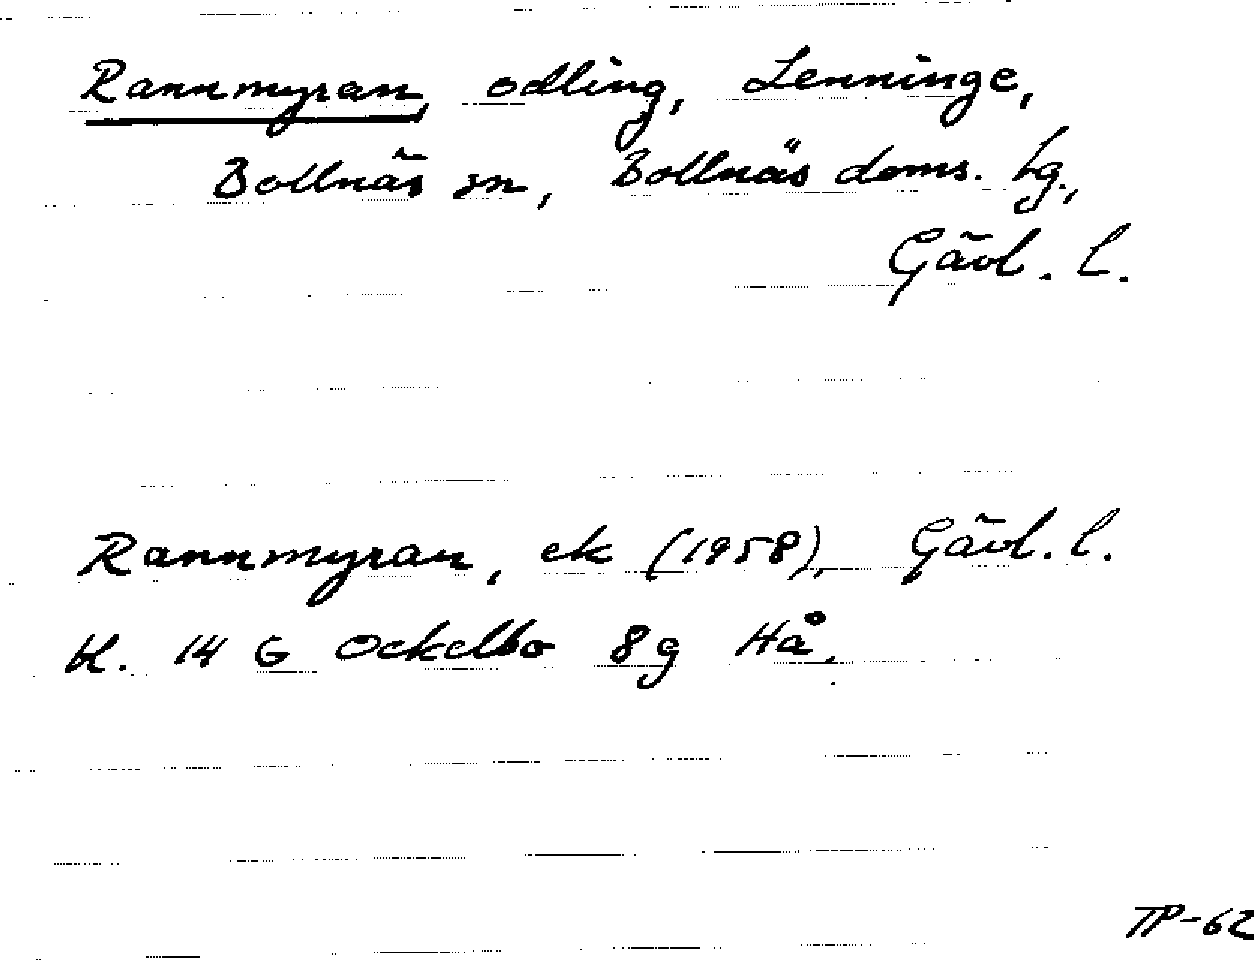 Rannmyran, odling, Lenninge,
Bollnäs sn, Bollnäs doms. hg.,
Gävl. l.
Rannmyran, ek (1958), Gävl. l.
bl. 14 G Ockelbo 8g Hå.
TP-62